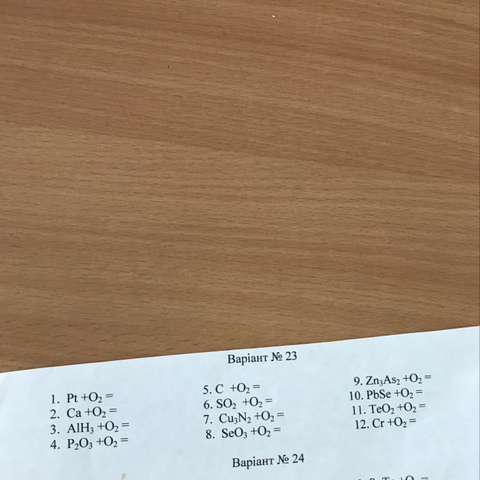 Варіант № 23
1. Pt +O₂ =
2. Ca +O₂ =
3. AlH₃ +O₂ =
4. P₂O₃ +O₂ =
5. C +O₂ =
6. SO₂ +O₂ =
7. Cu₃N₂ +O₂ =
8. SeO₃ +O₂ =
9. Zn₃As₂ +O₂ =
10. PbSe +O₂ =
11. TeO₂ +O₂ =
12. Cr +O₂ =
Варіант № 24